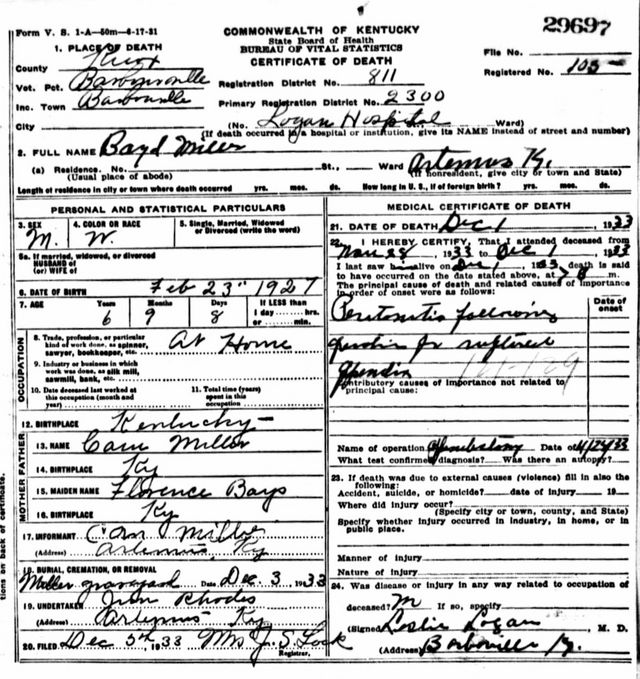 Form V. S. 1-A—50m—6-17-31
29697
1. PLACE OF DEATH
COMMONWEALTH OF KENTUCKY
State Board of Health
BUREAU OF VITAL STATISTICS
CERTIFICATE OF DEATH
File No.
Registered No. 105
County Knox
Vot. Pct. Barbourville
Registration District No. 811
Inc. Town Barbourville
Primary Registration District No. 2300
City (No. Logan Hospital Ward)
(If death occurred in a hospital or institution, give its NAME instead of street and number)
2. FULL NAME Boyd Miller
(a) Residence. No. St., Ward Artemus Ky.
(Usual place of abode) (If nonresident, give city or town and State)
Length of residence in city or town where death occurred yrs. mos. ds. How long in U. S., if of foreign birth? yrs. mos. ds.
PERSONAL AND STATISTICAL PARTICULARS
3. SEX M. 4. COLOR OR RACE W. 5. Single, Married, Widowed or Divorced (write the word)
5a. If married, widowed, or divorced
HUSBAND of
(or) WIFE of
6. DATE OF BIRTH Feb 23" 1927
7. AGE Years 6 Months 9 Days 8 If LESS than 1 day hrs. or min.
OCCUPATION
8. Trade, profession, or particular kind of work done, as spinner, sawyer, bookkeeper, etc. At Home
9. Industry or business in which work was done, as silk mill, sawmill, bank, etc.
10. Date deceased last worked at this occupation (month and year)
11. Total time (years) spent in this occupation
12. BIRTHPLACE Kentucky
MOTHER FATHER
13. NAME Cam Miller
14. BIRTHPLACE Ky
15. MAIDEN NAME Florence Bays
16. BIRTHPLACE Ky
17. INFORMANT Cam Miller
(Address) Artemus, Ky
18. BURIAL, CREMATION, OR REMOVAL
Miller graveyard Date Dec 3, 1933
19. UNDERTAKER Jim Rhodes
(Address) Artemus Ky
20. FILED Dec 5th 1933 Mrs J. S. Lock
Registrar.
MEDICAL CERTIFICATE OF DEATH
21. DATE OF DEATH Dec 1, 1933
22. I HEREBY CERTIFY, That I attended deceased from
Nov 28, 1933 to Dec 1, 1933
I last saw him alive on Dec 1, 1933, death is said
to have occurred on the date stated above, at m.
The principal cause of death and related causes of importance
in order of onset were as follows:
Date of onset
Peritonitis following
operation for ruptured
Appendix
Contributory causes of importance not related to
principal cause:
Name of operation Appendectomy Date of
What test confirmed diagnosis? Was there an autopsy?
23. If death was due to external causes (violence) fill in also the
following:
Accident, suicide, or homicide? date of injury 19
Where did injury occur?
(Specify city or town, county, and State)
Specify whether injury occurred in industry, in home, or in
public place.
Manner of injury
Nature of injury
24. Was disease or injury in any way related to occupation of
deceased? If so, specify
(Signed) Leslie Logan M. D.
(Address) Barboville Ky.
tions on back of certificate.